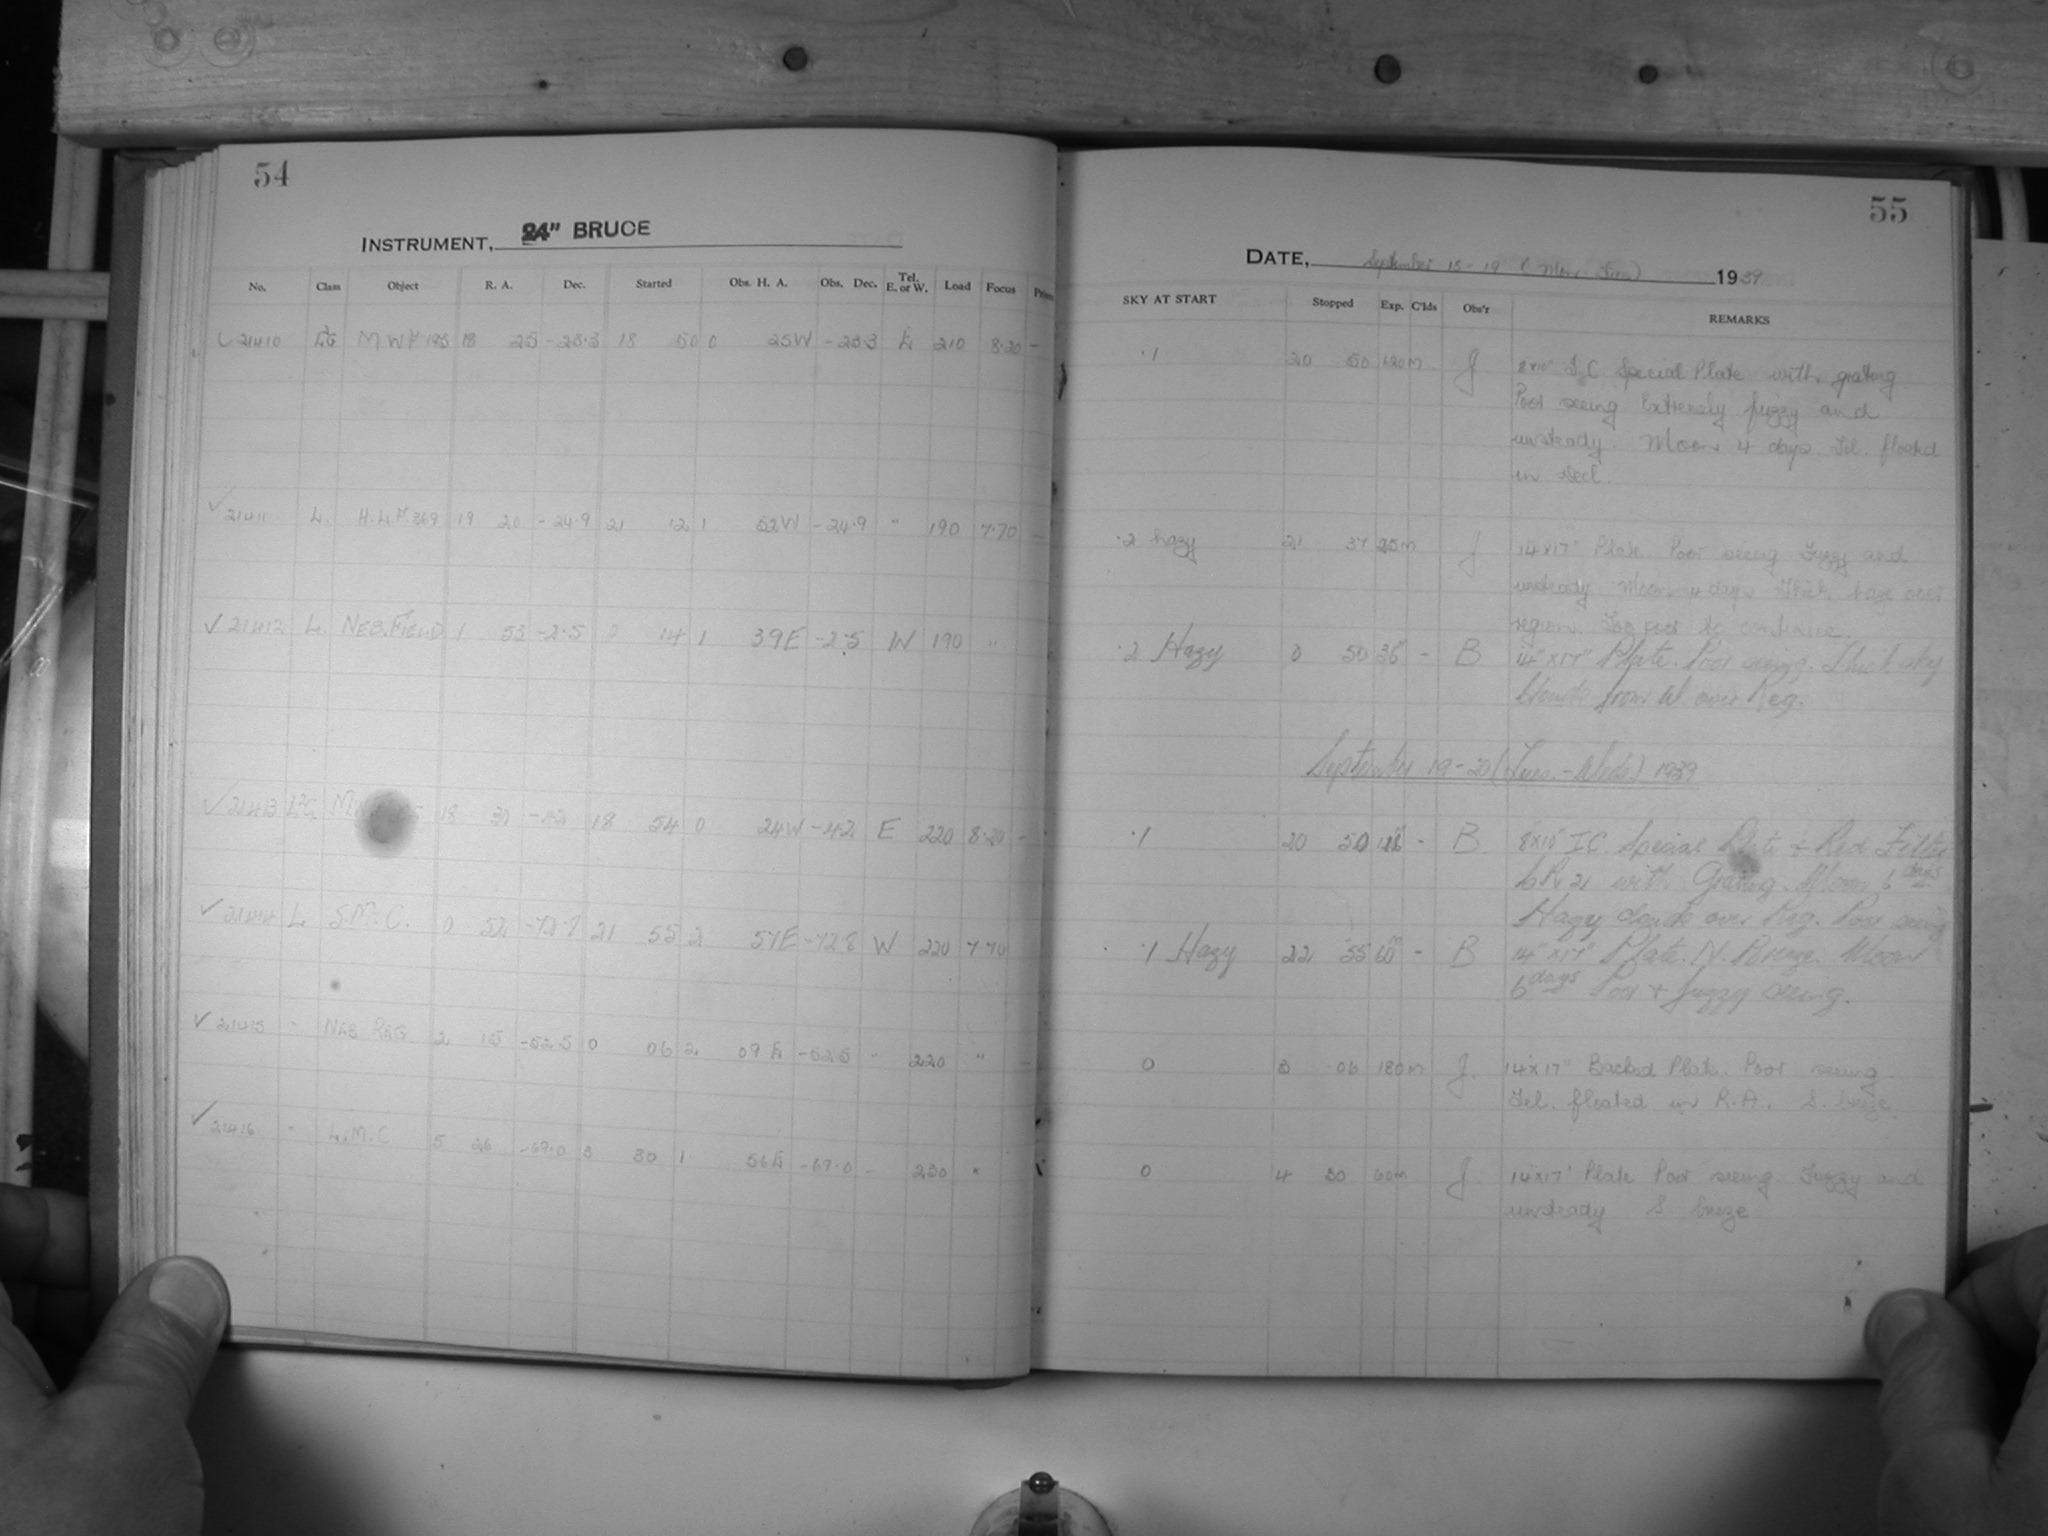 54
INSTRUMENT, 24" BRUCE
No. Class Object R. A. Dec. Started Obs. H. A. Obs. Dec. Tel. E. or W. Load Focus
21410 MWF 193 18 25 18 50 0 25W E 210 8.20 -
21411 L. H.L.F. 369 19 20 -24.9 21 12 1 52W -24.9 " 190 7.70 -
21412 L. NEB. FIELD 1 53 -2.5 0 14 1 39E -2.5 W 190 "
21413 18 18 54 0 24W E 220 8.20 -
21414 L S.M.C. 0 52 21 55 2 57E -72.8 W 220 7.70
21415 " NEB REG 2 15 -52.5 0 06 2 09E -52.5 " 220 "
21416 " L.M.C 5 26 -69.0 3 30 1 56E -69.0 " 230 "
55
DATE, September 18-19 (Mon-Tues) 1939
SKY AT START Stopped Exp. C'lds Obs'r REMARKS
.1 20 50 120m J 8x10" I.C. Special Plate with grating
Poor seeing Extremely fuzzy and
unsteady. Moon 4 days Tel. floated
in Decl.
.2 hazy 21 37 25m J 14"x17" Plate. Poor seeing Fuzzy and
unsteady Moon 4 days Thick haze over
region. Too poor to continue.
.2 Hazy 0 50 36m - B 14"x17" Plate. Poor seeing. Thick sky
Clouds from W. over Reg.
September 19-20 (Tues.-Weds.) 1939
.1 20 50 116m - B 8x10" I.C. Special Plate + Red Filter
with Grating. Moon 6 days
Hazy clouds over Reg. Poor seeing
.1 Hazy 22 55 60m - B 14"x17" Plate. N. Breeze. Moon
6 days Poor + fuzzy seeing.
0 3 06 180m J. 14"x17" Backed Plate. Poor seeing
Tel. floated in R.A. S. breeze.
0 4 30 60m J 14"x17" Plate Poor seeing Fuzzy and
unsteady S breeze